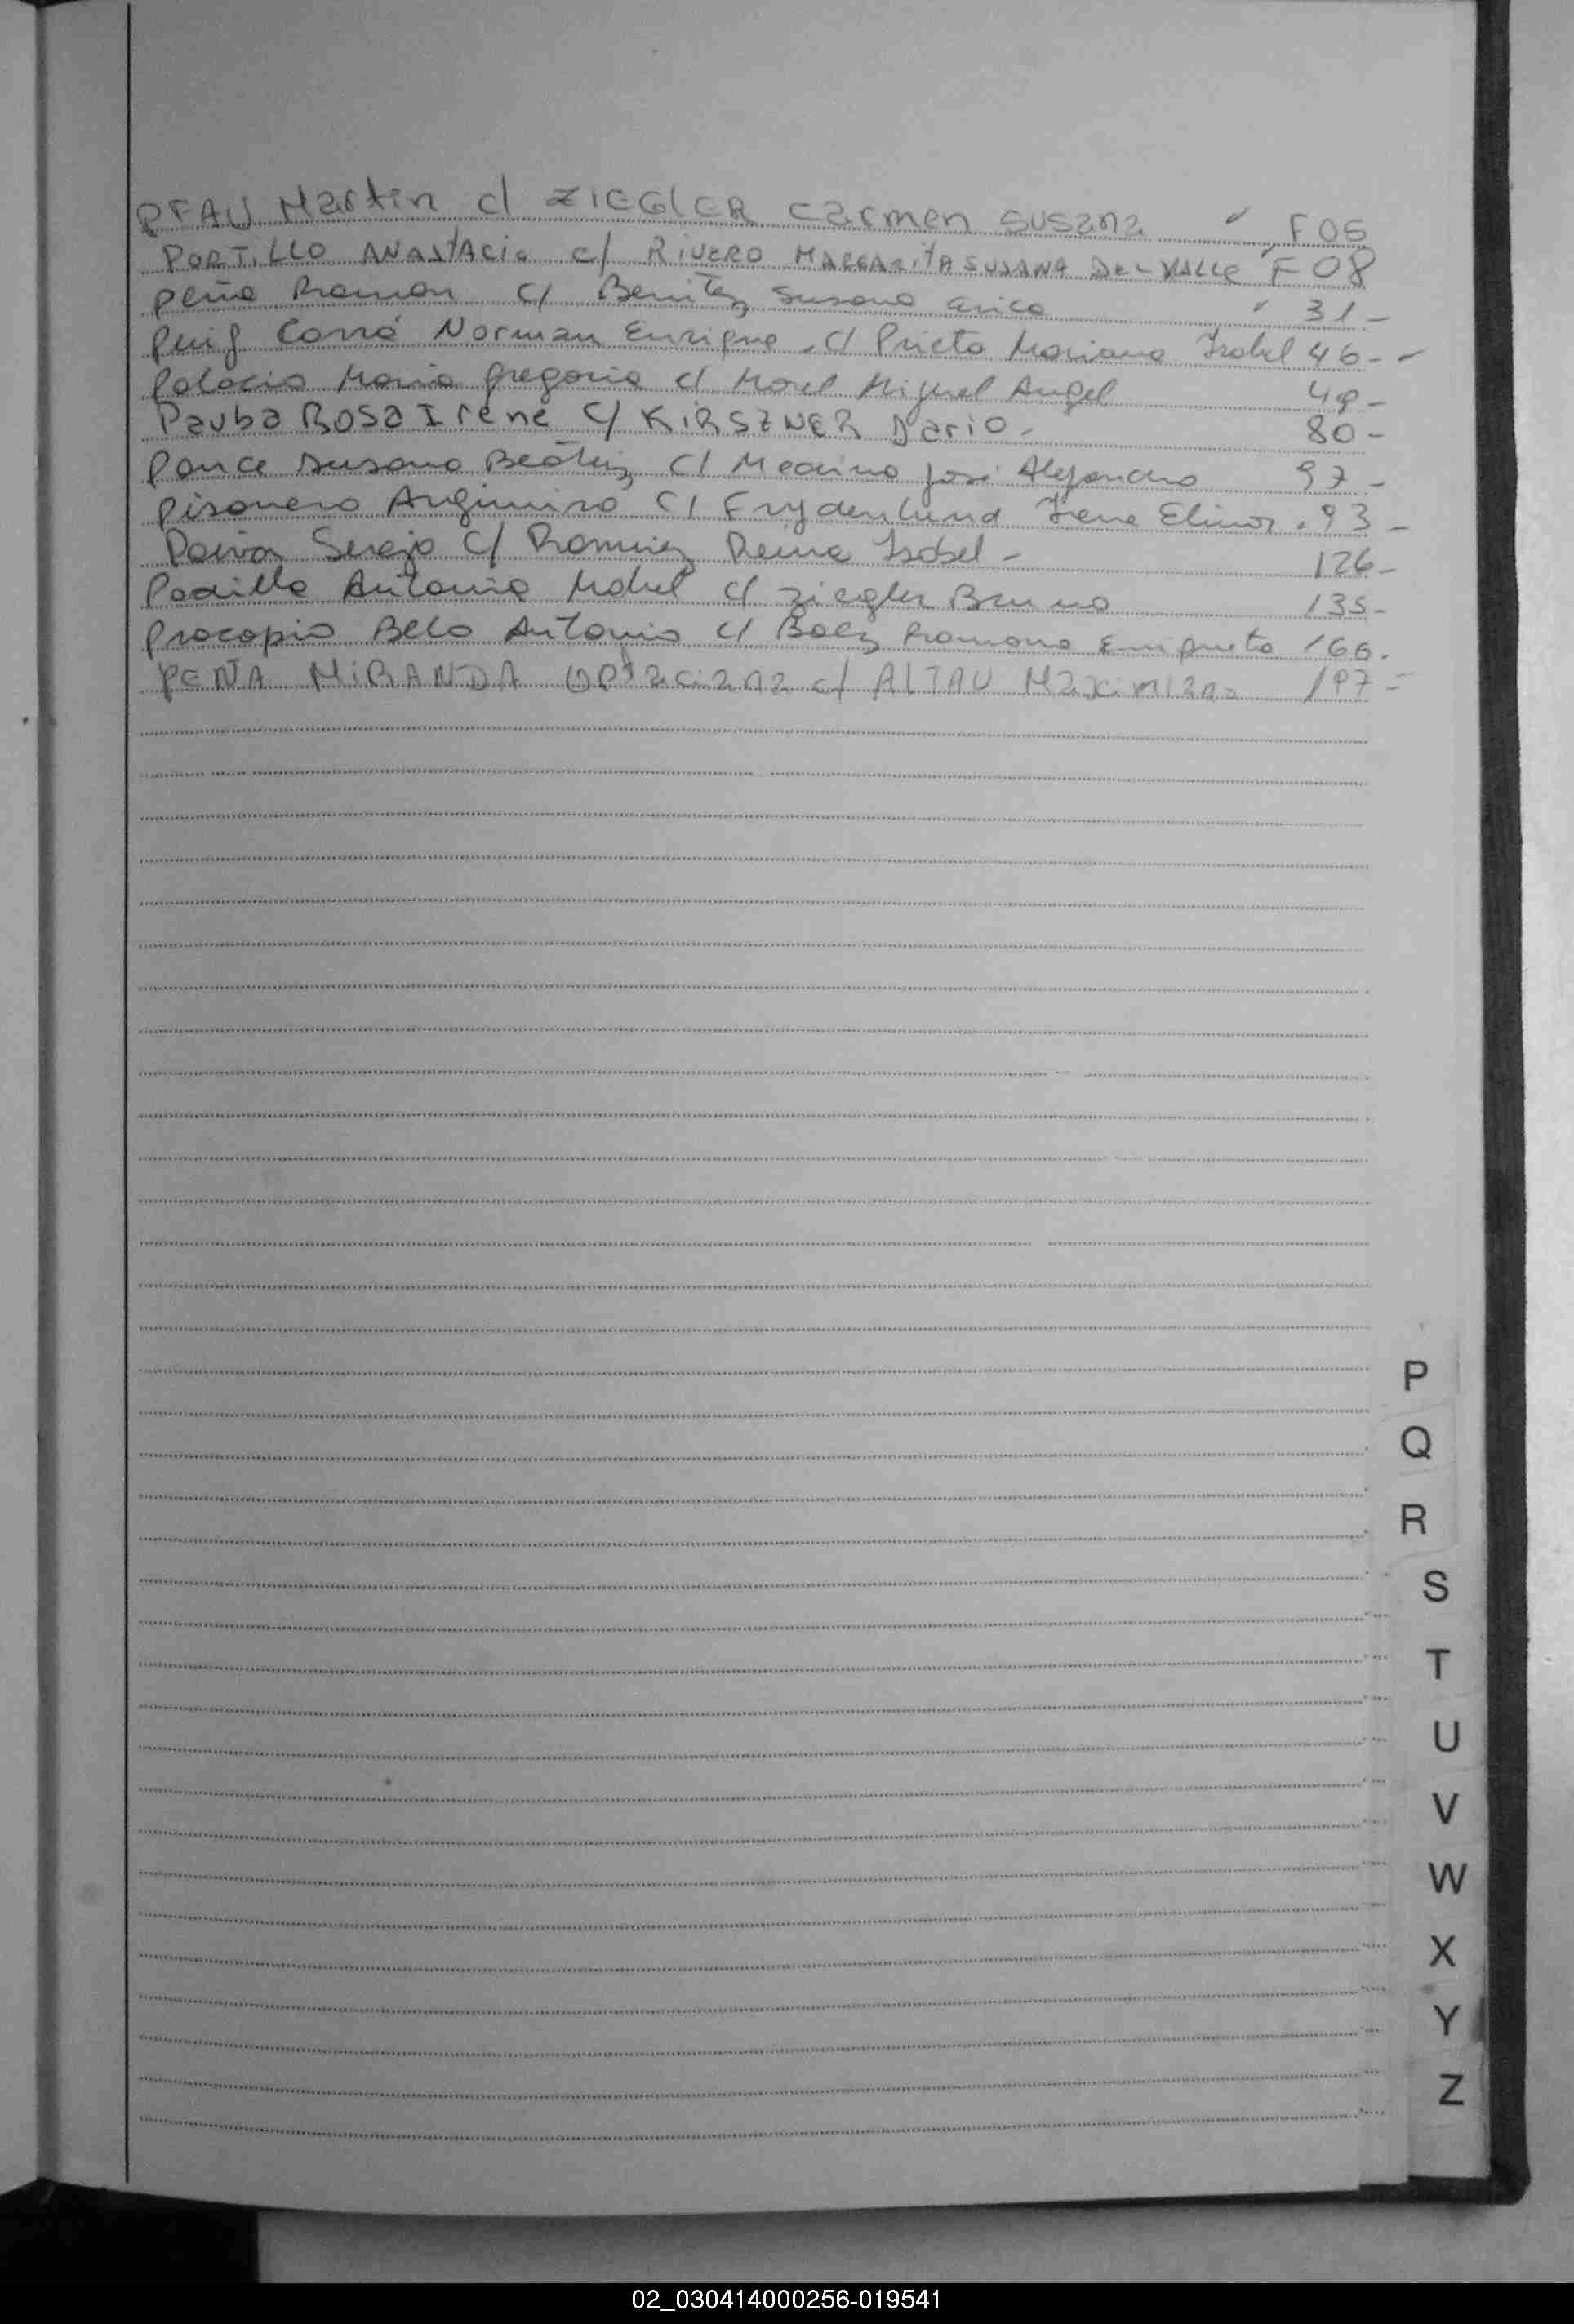 PFAU Martin c/ ZIEGLER Carmen Susana F 05
PORTILLO ANASTACIO c/ RIVERO MARGARITA SUSANA DEL VALLE F 08
Peña Ramon c/ Benitez Susana 31-
Puig Carré Norman Enrique c/ Prieto Mariana Isabel 46-
Palacio Maria Gregoria c/ Morel Miguel Angel 49-
Pauba ROSA Irene c/ KIRSZNER Dario. 80-
Ponce Susana Beatriz c/ Medina José Alejandro 97-
Pisonero Argimiro c/ Frydenlund Irene Elinor. 93-
Paiva Sergio c/ Ramirez Reina Isabel - 126-
Padilla Antonia Mabel c/ Ziegler Bruno 135-
Procopio Belo Antonio c/ Baez Ramona Enriqueta 166.
PEÑA MIRANDA c/ ALTAU Maximiano 197-
P
Q
R
S
T
U
V
W
X
Y
Z
02_030414000256-019541